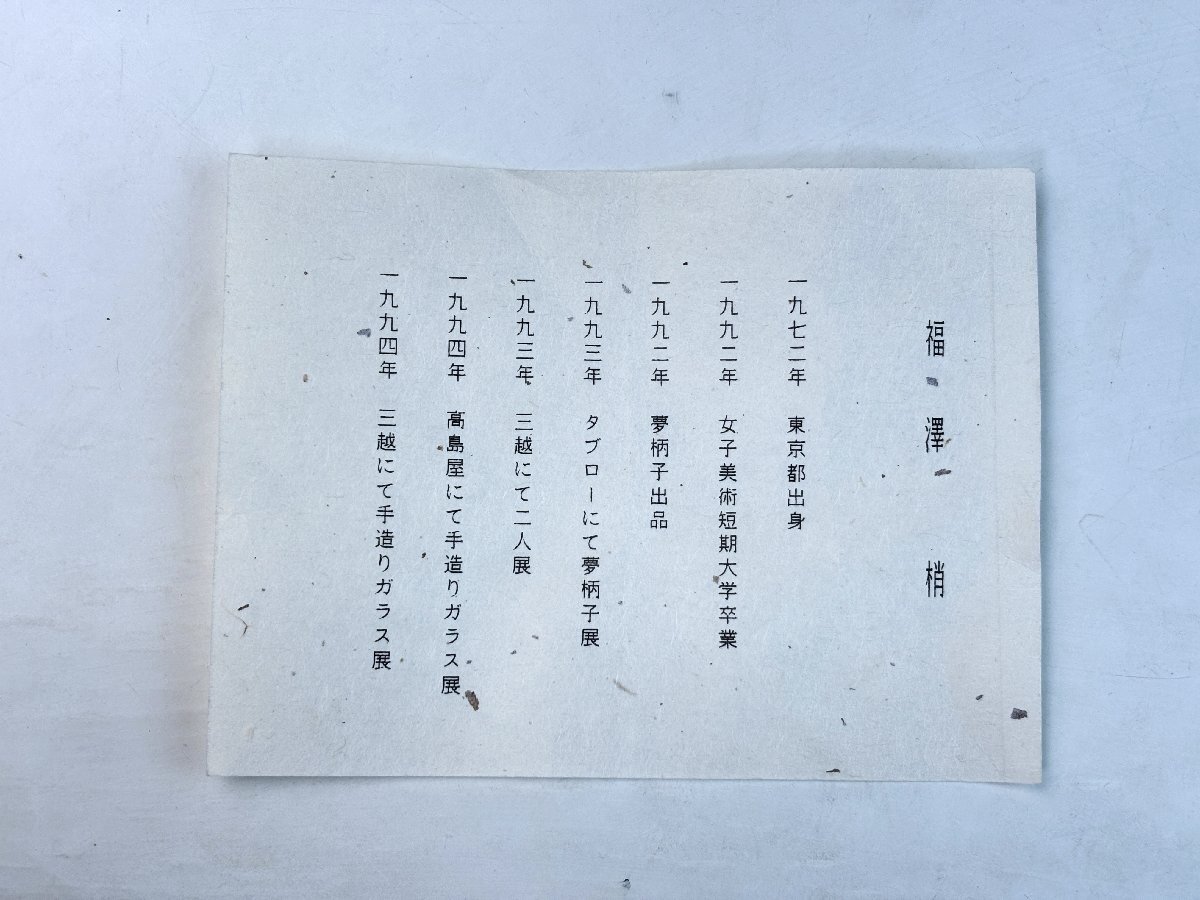 福澤 梢
一九七二年 東京都出身
一九九二年 女子美術短期大学卒業
一九九二年 夢柄子出品
一九九三年 タブローにて夢柄子展
一九九三年 三越にて二人展
一九九四年 高島屋にて手造りガラス展
一九九四年 三越にて手造りガラス展